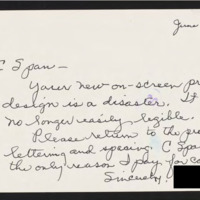 June
C Span —
Your new on-screen pr
design is a disaster. It
no longer easily legible.
Please return to the pre
lettering and spacing. C Spa
the only reason I pay for ca
Sincerely,